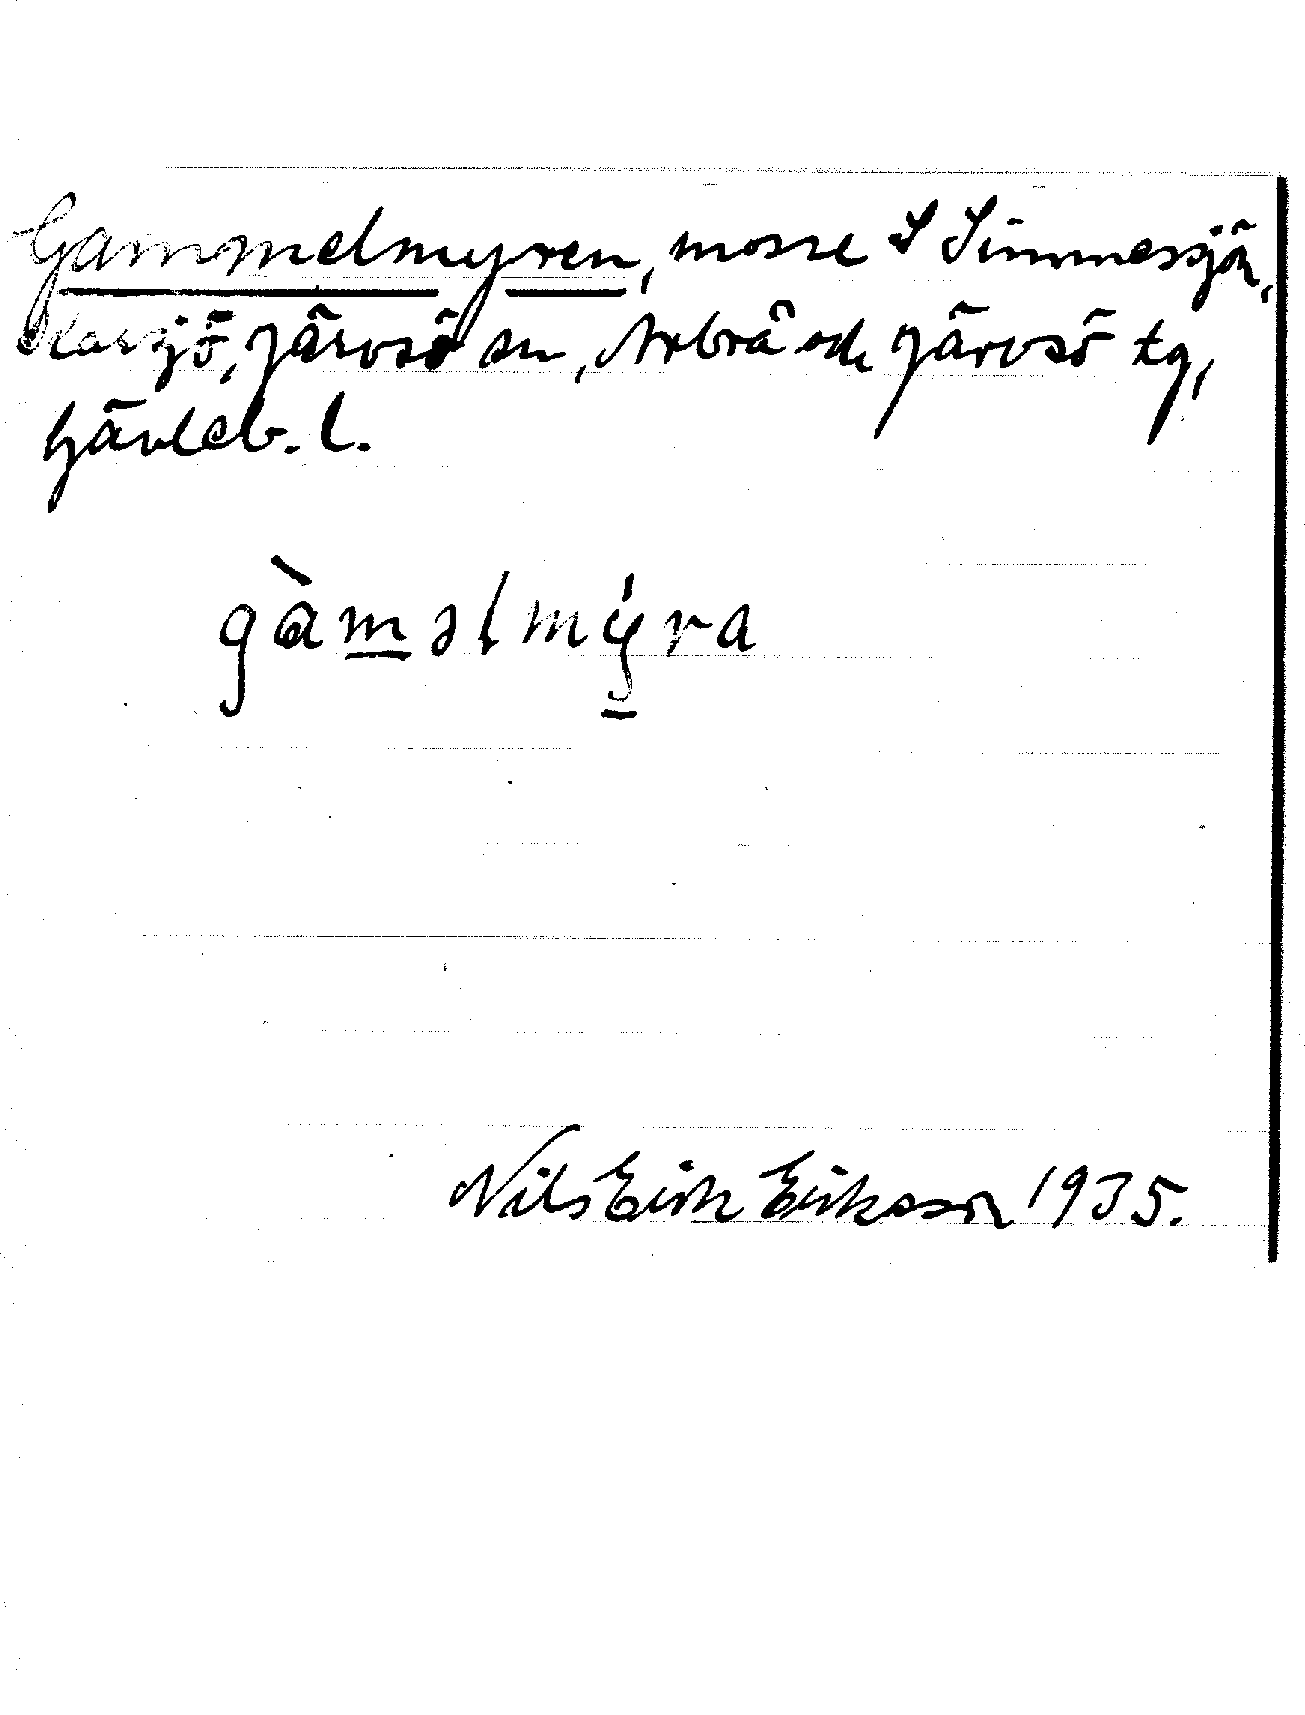 Gammelmyren, mosse S Simmessjön,
Karsjö, Järvsö sn, Arbrå och Järvsö tg,
Gävleb. l.
gàməlmy̍ra
Nils Erik Eriksson 1935.